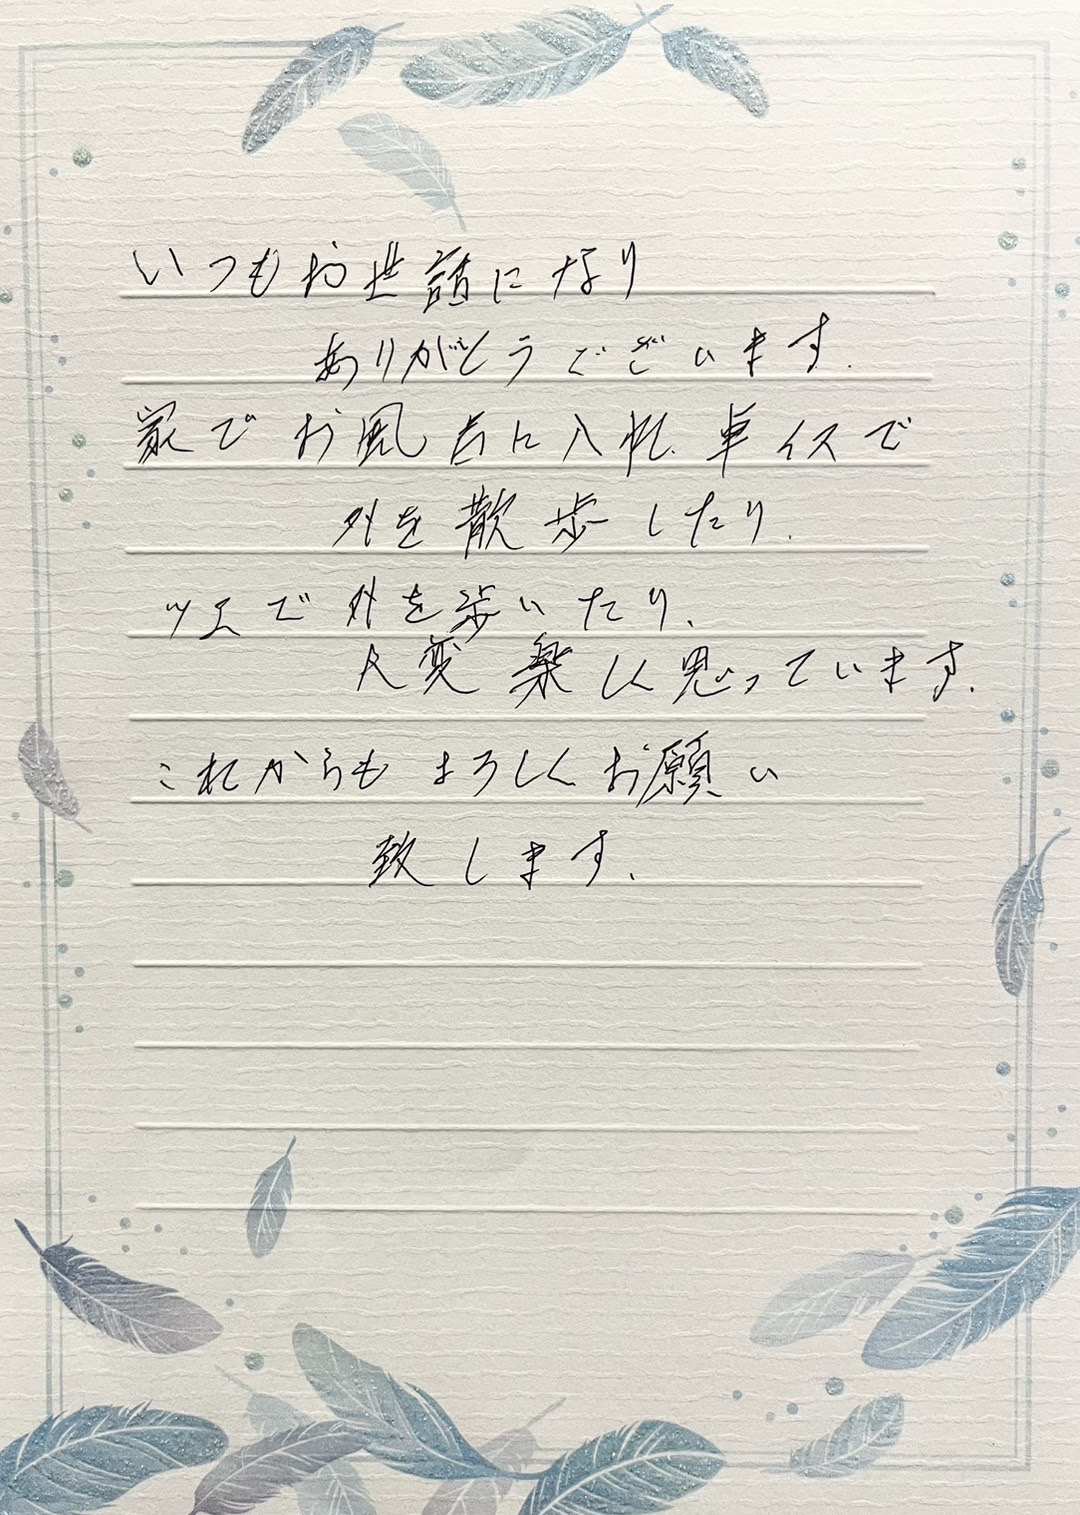 いつもお世話になり
ありがとうございます.
家でお風呂に入れ.車イスで
外を散歩したり.
ツエで外を歩いたり.
大変楽しく思っています.
これからもよろしくお願い
致します.